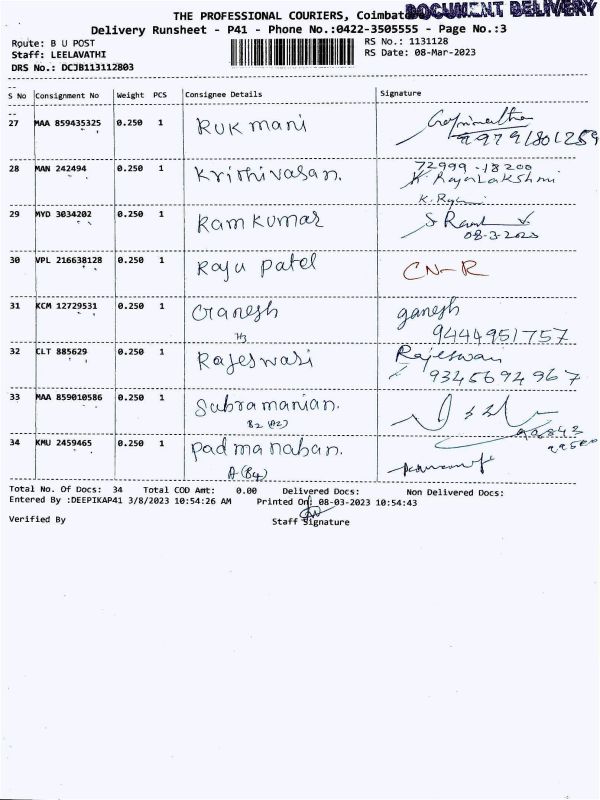 THE PROFESSIONAL COURIERS,
DOCUMENT DELIVERY
Delivery Runsheet - P41 - Phone No.:0422-3505555 - Page No.:3
Route: B U POST
RS No.: 1131128
Staff: LEELAVATHI
RS Date: 08-Mar-2023
DRS No.: DCJB113112803
S No Consignment No Weight PCS Consignee Details Signature
27 MAA 859435325 0.250 1 Rukmani
28 MAN 242494 0.250 1 Krithivasan. 72999-18200
K. Rajalakshmi
29 MYD 3034202 0.250 1 Ram Kumar
08-3-2023
30 VPL 216638128 0.250 1 Raju Patel CN-R
31 KCM 12729531 0.250 1 Ganesh ganesh
H3 9444951757
32 CLT 885629 0.250 1 Rajeswari Rajeswari
9345694967
33 MAA 859010586 0.250 1 Subramanian.
34 KMU 2459465 0.250 1 Padmanaban.
A-(B4)
Total No. Of Docs: 34 Total COD Amt: 0.00 Delivered Docs: Non Delivered Docs:
Entered By :DEEPIKAP41 3/8/2023 10:54:26 AM Printed On: 08-03-2023 10:54:43
Verified By Staff Signature